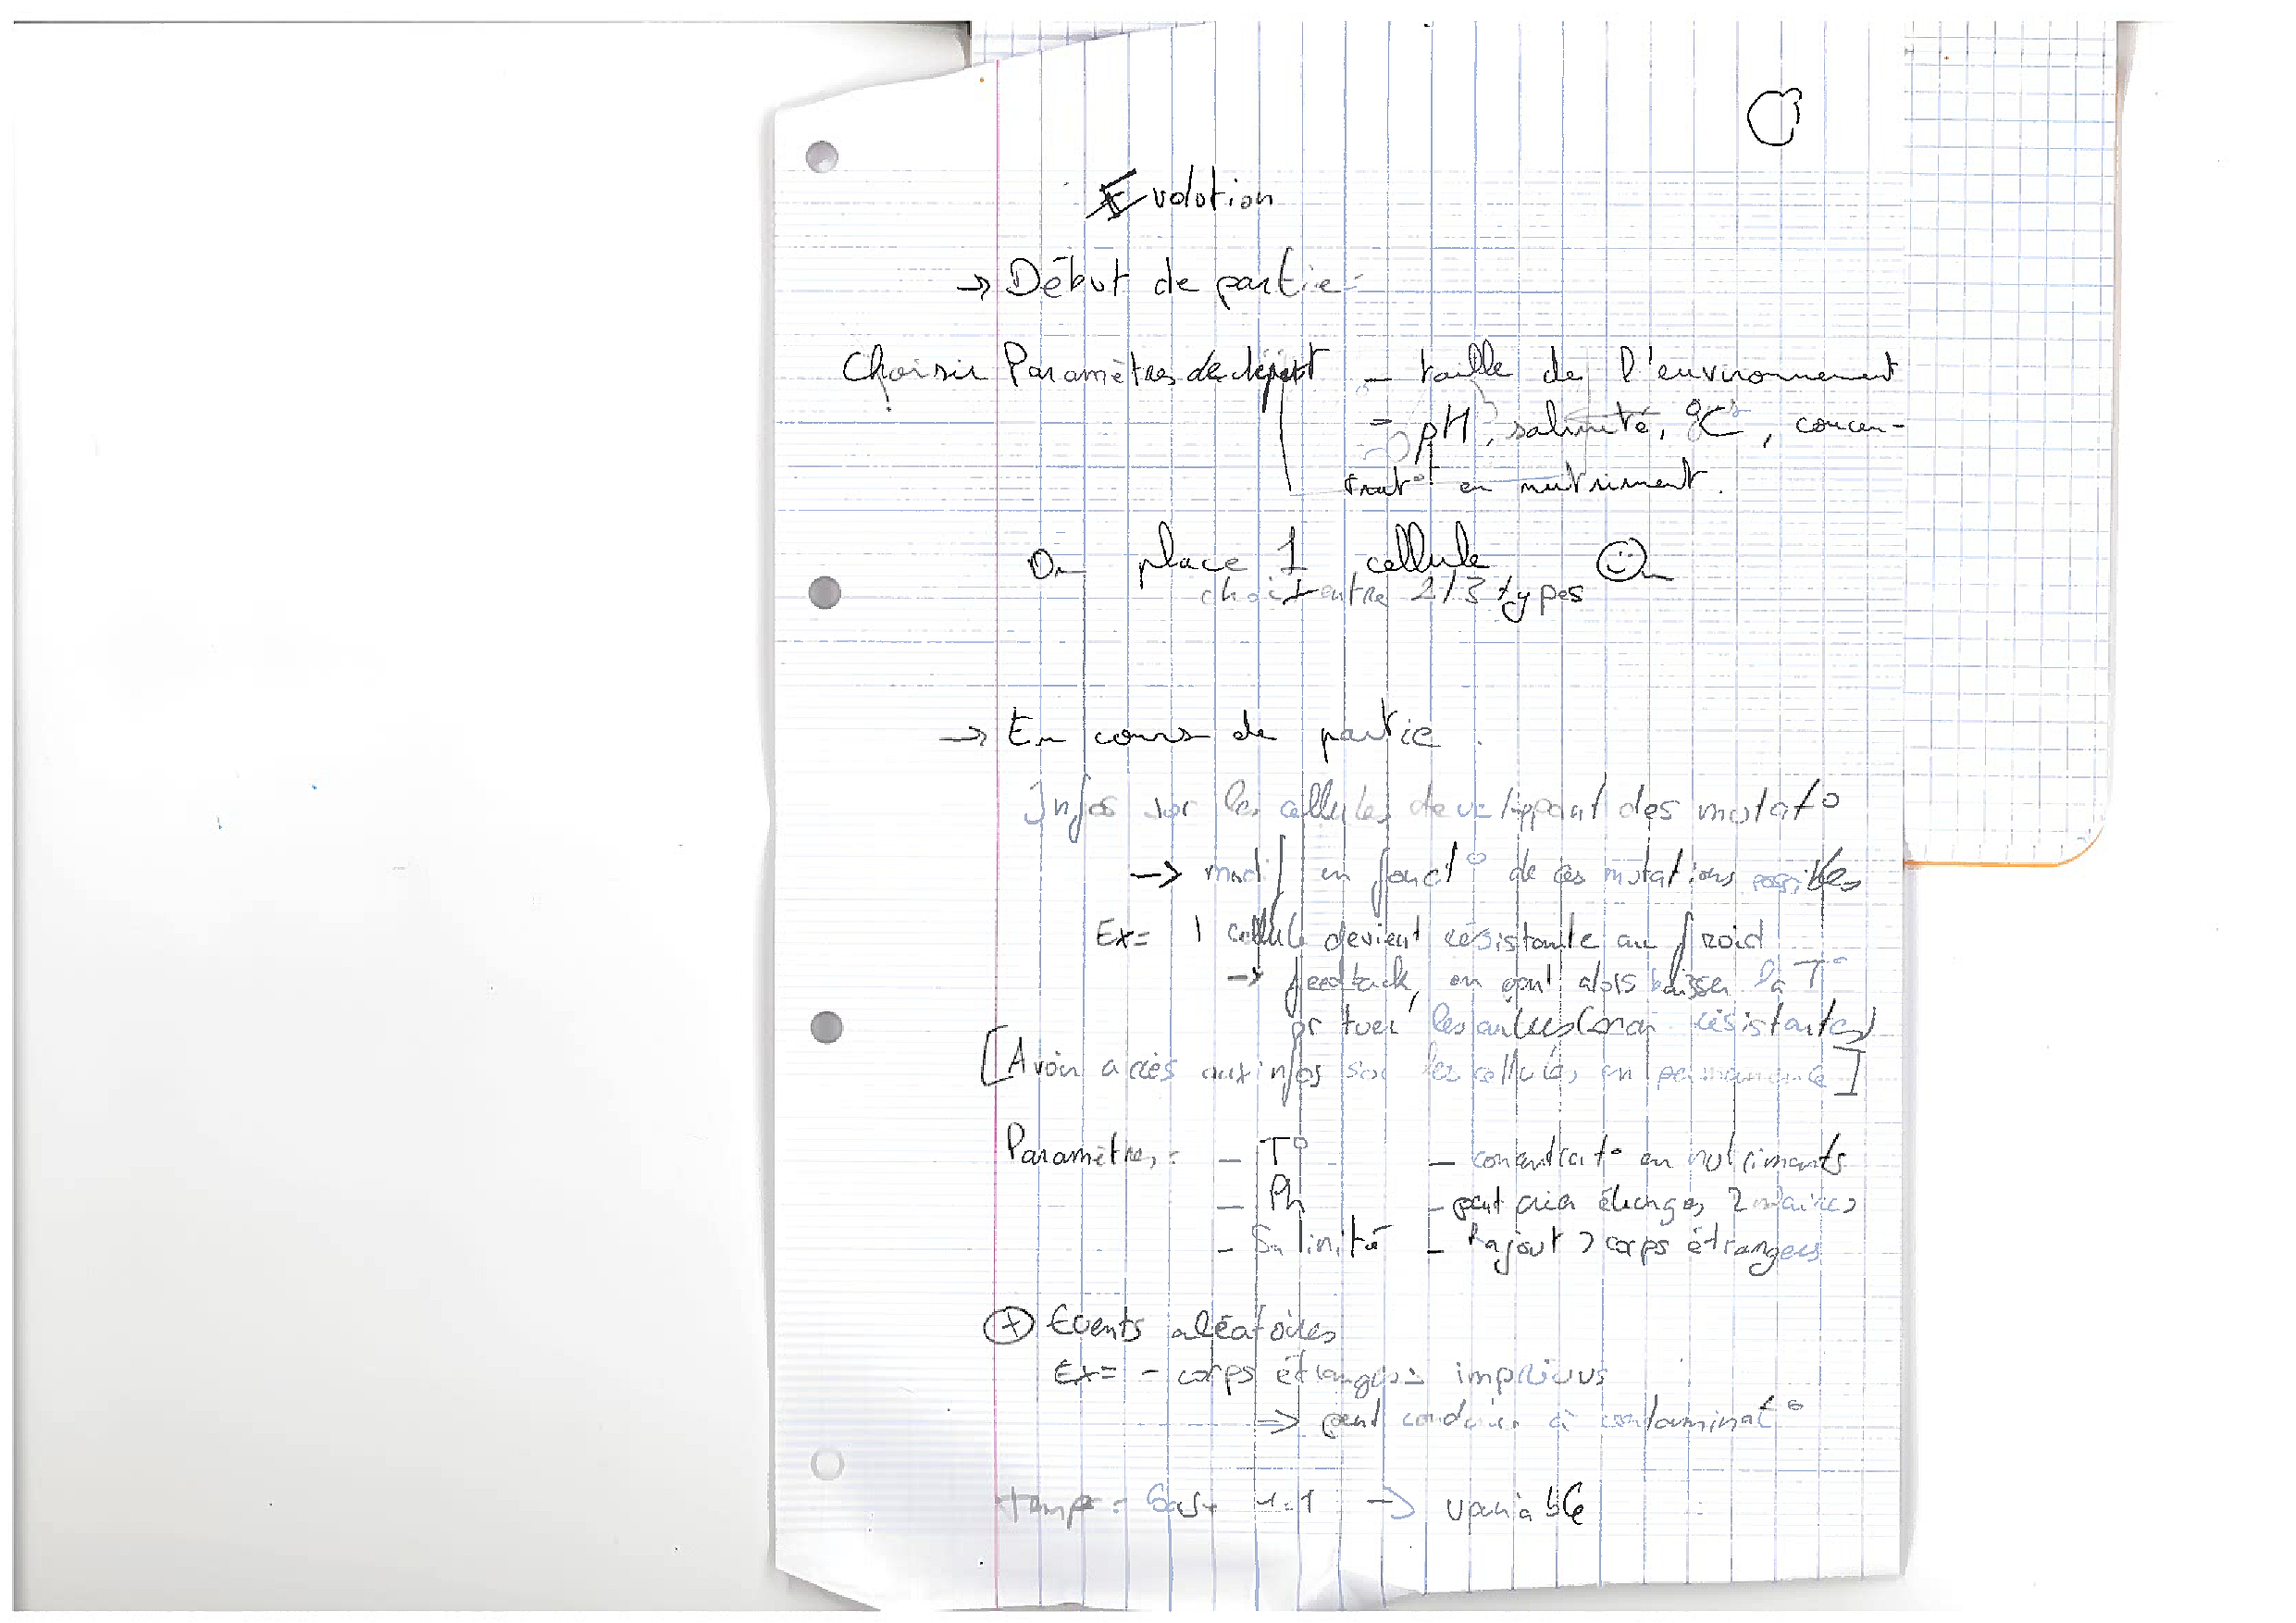 Evolution
→ Début de partie :
Choisir Paramètres de départ – taille de l'environnement
– pH, salinité, °C, concen-
trat° en nutriment.
On place 1 cellule
choix entre 2/3 types
→ En cours de partie.
Infos sur les cellules développant des mutat°
→ modif en fonct° de ces mutations possibles
Ex = 1 cellule devient résistante au froid
→ feedback, on peut alors baisser la T°
pr tuer les autres (non résistantes)
[Avoir accès aux infos sur les cellules en permanence]
Paramètres : – T° – concentrat° en nutriments
– Ph – peut créer échanges
– Salinité – Rajout corps étrangers
⊕ Events aléatoires
Ex = – corps étrangers imprévus
⇒ peut conduire à contaminat°
temps = base → variable